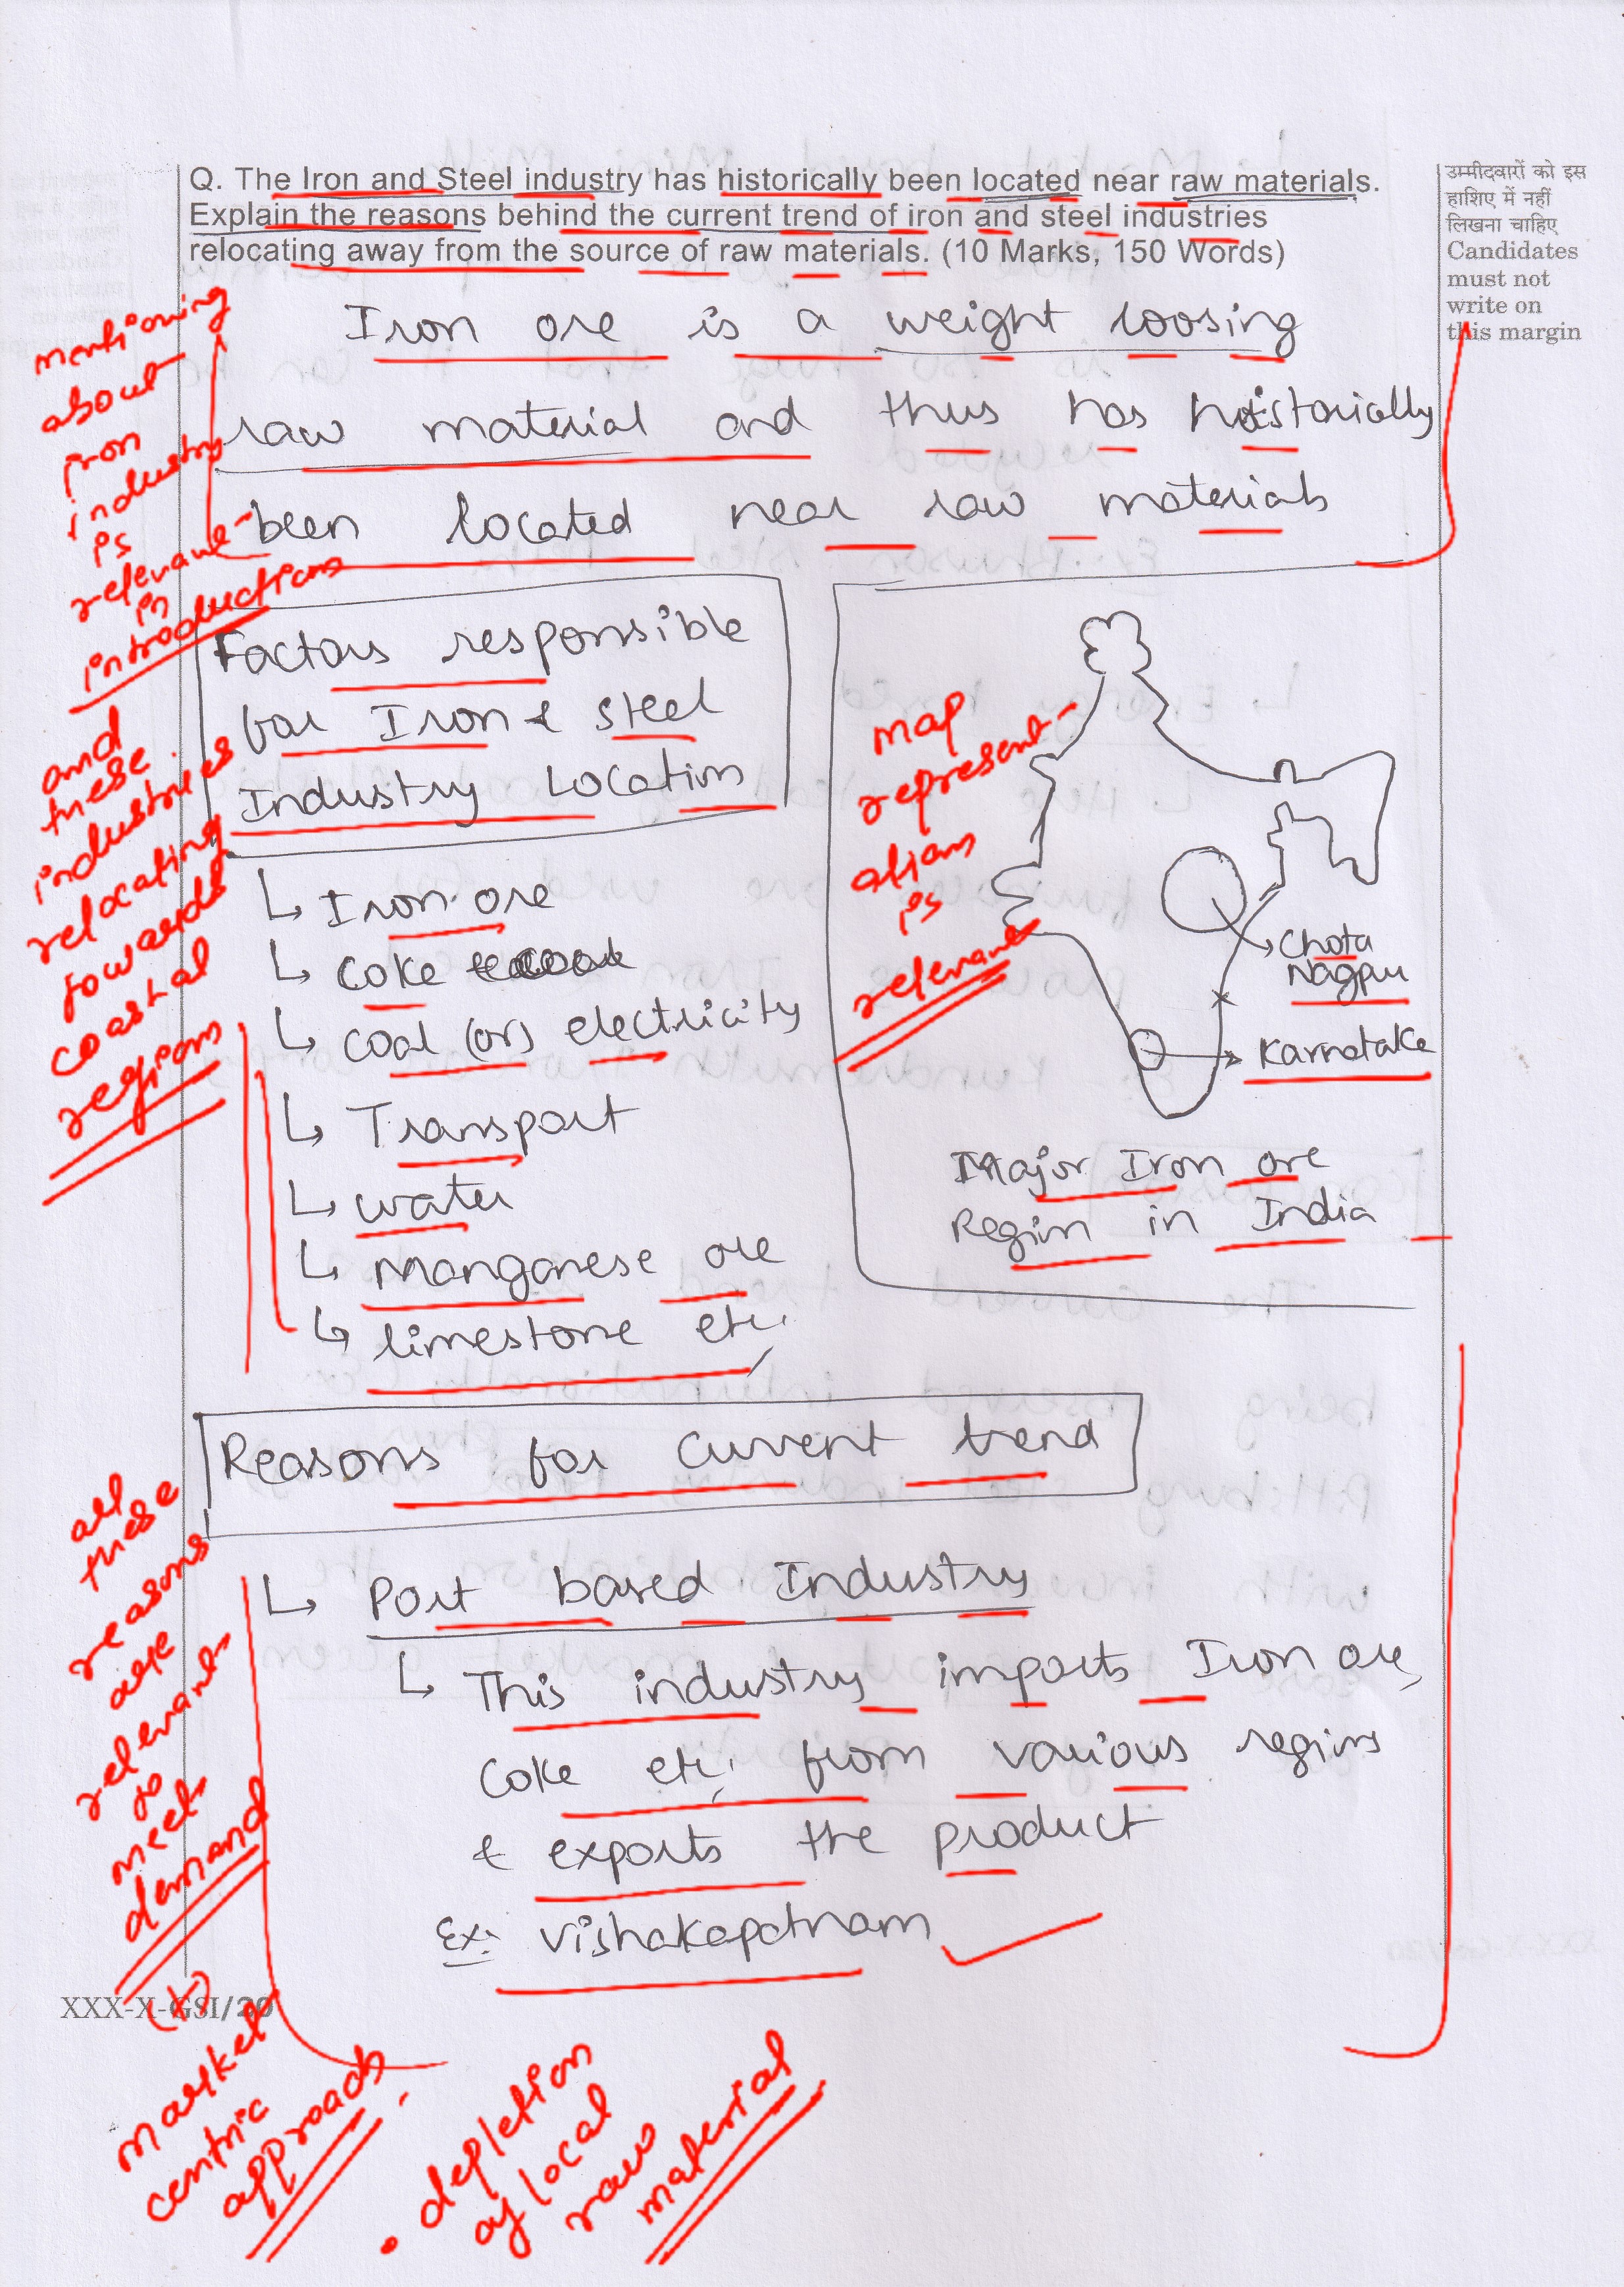 Q. The Iron and Steel industry has historically been located near raw materials.
Explain the reasons behind the current trend of iron and steel industries
relocating away from the source of raw materials. (10 Marks, 150 Words)
उम्मीदवारों को इस
हाशिए में नहीं
लिखना चाहिए
Candidates
must not
write on
this margin
Iron ore is a weight loosing
raw material and thus has historically
been located near raw materials
mentioning
about
iron
industry
is
relevant
in
introductions
and
these
industries
relocating
towards
coastal
regions
Factors responsible
for Iron & steel
Industry Location
↳ Iron ore
↳ coke
↳ coal (or) electricity
↳ Transport
↳ water
↳ Manganese ore
↳ limestone etc.
map
represent-
ations
is
relevant
Chota
Nagpur
Karnataka
Major Iron ore
Region in India
Reasons for current trend
↳ Port based Industry
↳ This industry imports Iron ore,
Coke etc. from various regions
& exports the product
Ex: Vishakapatnam
all
these
reasons
are
relevant
to
meet
demand
XXX-X-GSI/20
(+)
market
centric
approach.
• depletion
of local
raw
material